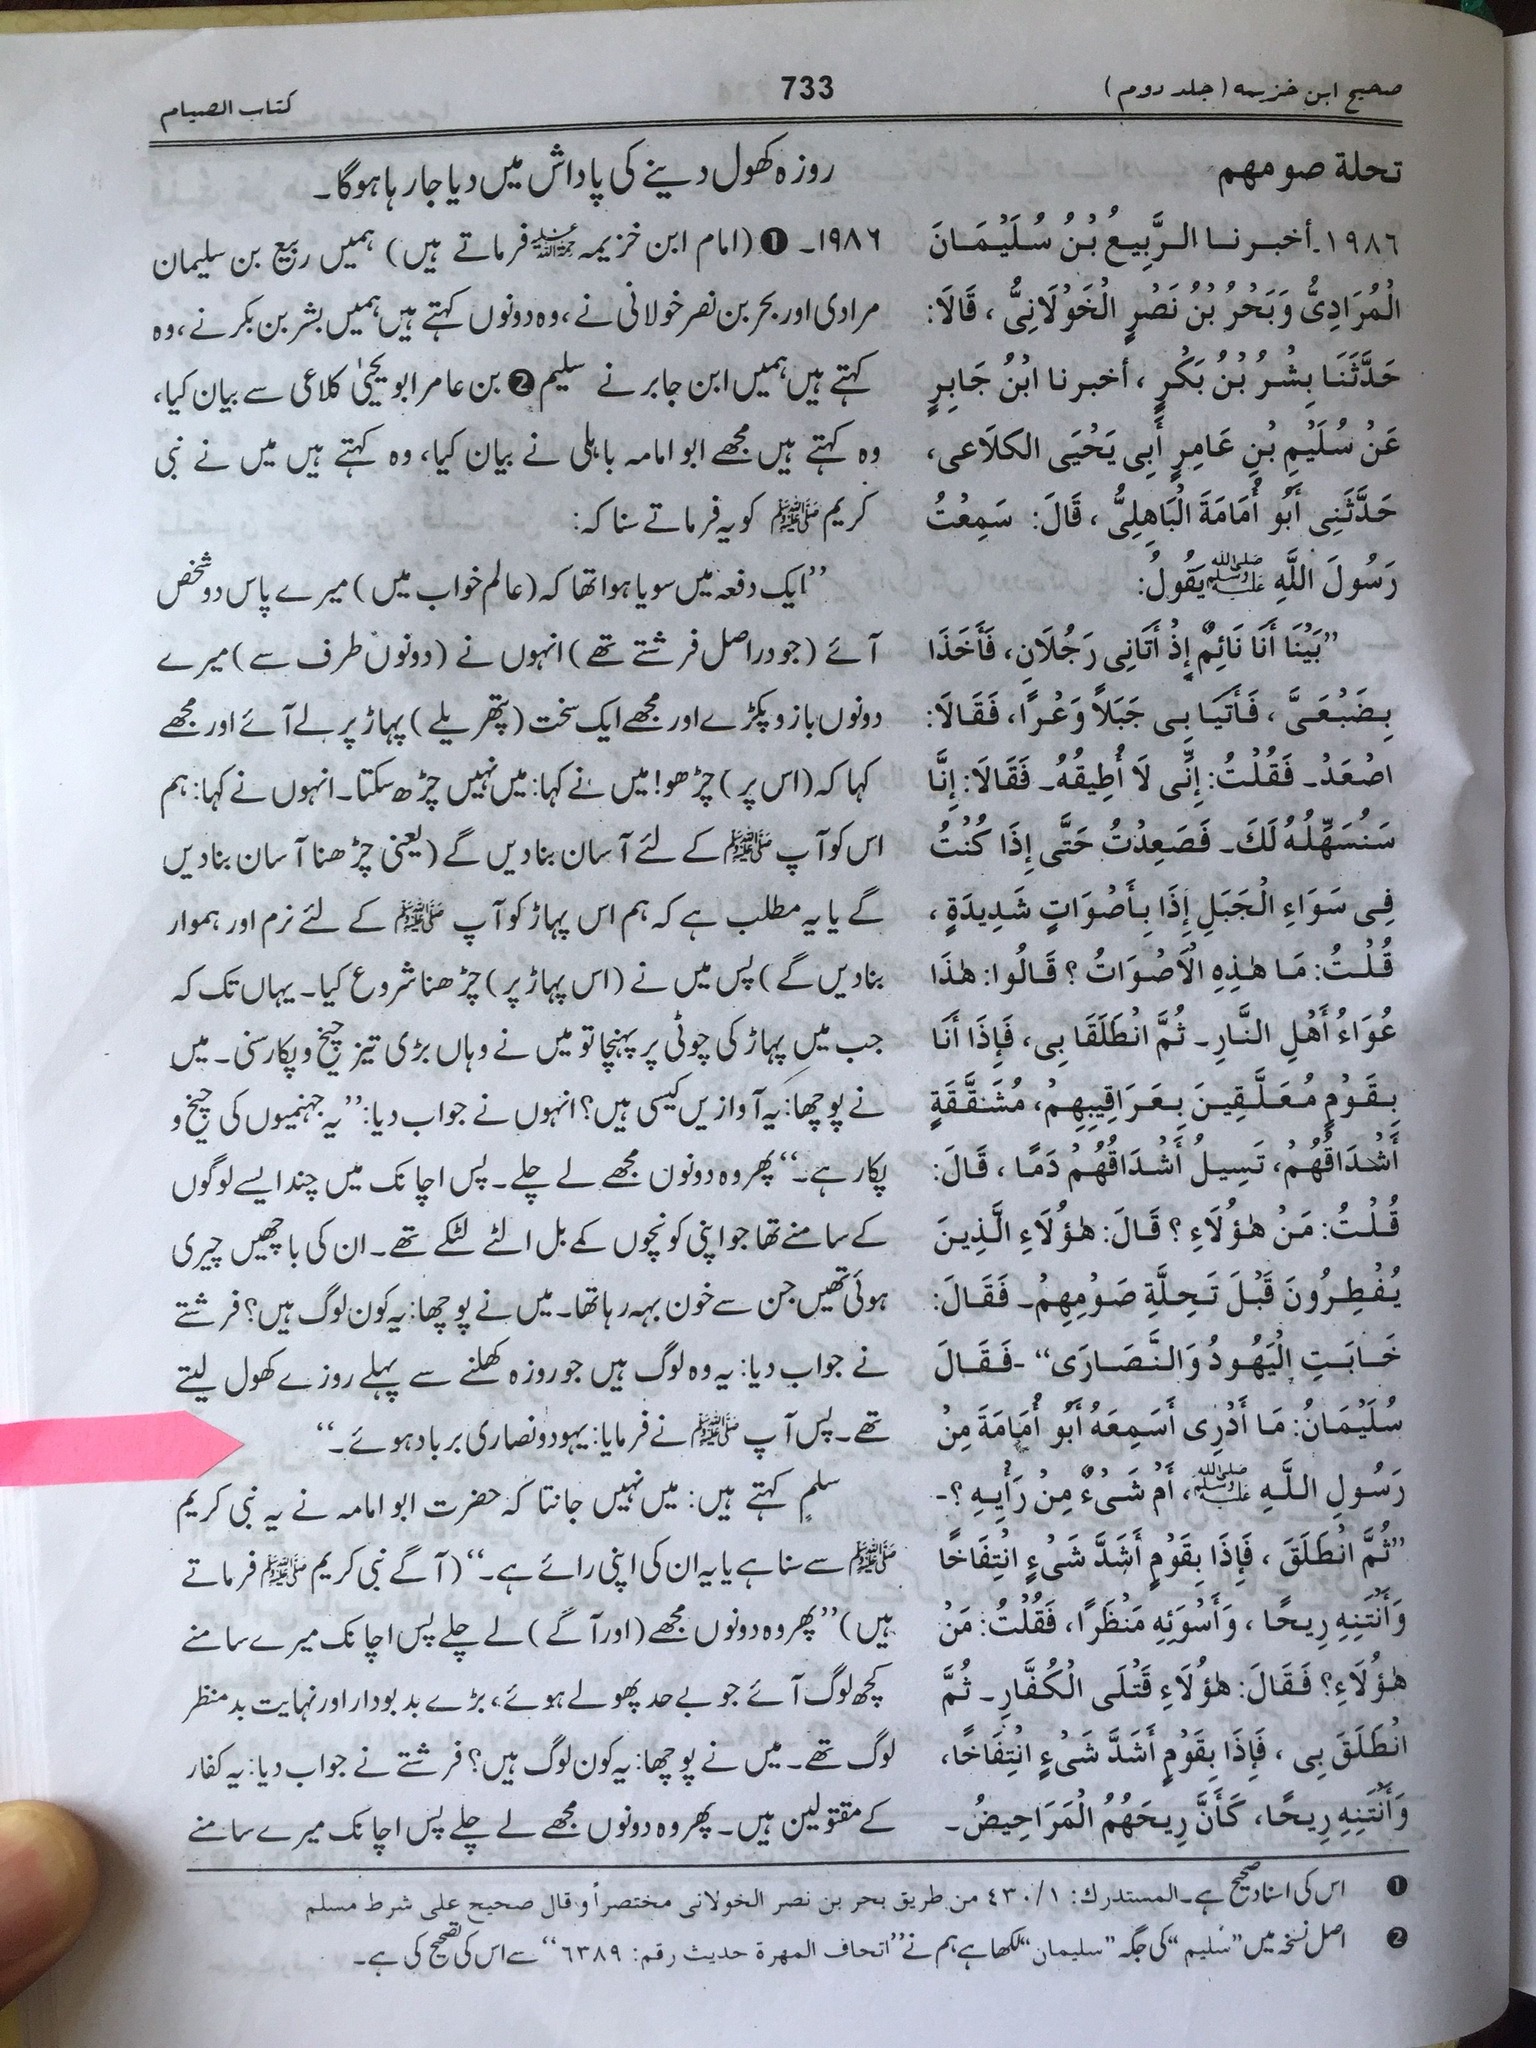 صحیح ابن خزیمه (جلد دوم)
733
کتاب الصیام
تحلة صومهم
١٩٨٦۔أخبرنا الرَّبِيعُ بْنُ سُلَيْمَانَ
الْمُرَادِيُّ وَبَحْرُ بْنُ نَصْرٍ الْخَوْلَانِيُّ ، قَالَا:
حَدَّثَنَا بِشْرُ بْنُ بَكْرٍ ، أخبرنا ابْنُ جَابِرٍ
عَنْ سُلَيْمِ بْنِ عَامِرٍ أَبِي يَحْيَى الكلَاعى،
حَدَّثَنِي أَبُو أُمَامَةَ الْبَاهِلِيُّ ، قَالَ: سَمِعْتُ
رَسُولَ اللَّهِ ﷺ يَقُولُ:
”بَيْنَا أَنَا نَائِمٌ إِذْ أَتَانِي رَجُلَانِ، فَأَخَذَا
بِضَبْعَيَّ ، فَأَتَيَا بِي جَبَلاً وَعْرًا، فَقَالَا:
اصْعَدْ۔ فَقُلْتُ: إِنِّي لَا أُطِيقُهُ۔ فَقَالَا: إِنَّا
سَنُسَهِّلُهُ لَكَ۔ فَصَعِدْتُ حَتَّى إِذَا كُنْتُ
فِي سَوَاءِ الْجَبَلِ إِذَا بِأَصْوَاتٍ شَدِيدَةٍ ،
قُلْتُ: مَا هٰذِهِ الْأَصْوَاتُ ؟ قَالُوا: هٰذَا
عُوَاءُ أَهْلِ النَّارِ۔ ثُمَّ انْطَلَقَا بِي، فَإِذَا أَنَا
بِقَوْمٍ مُعَلَّقِينَ بِعَرَاقِيبِهِمْ، مُشَقَّقَةٍ
أَشْدَاقُهُمْ، تَسِيلُ أَشْدَاقُهُمْ دَمًا ، قَالَ:
قُلْتُ: مَنْ هٰؤُلَاءِ ؟ قَالَ: هٰؤُلَاءِ الَّذِينَ
يُفْطِرُونَ قَبْلَ تَحِلَّةِ صَوْمِهِمْ۔ فَقَالَ:
خَابَتِ الْيَهُودُ وَالنَّصَارَى“ -فَقَالَ
سُلَيْمَانُ: مَا أَدْرِي أَسَمِعَهُ أَبُو أُمَامَةَ مِنْ
رَسُولِ اللَّهِ ﷺ، أَمْ شَيْءٌ مِنْ رَأْيِهِ ؟-
”ثُمَّ انْطَلَقَ ، فَإِذَا بِقَوْمٍ أَشَدَّ شَيْءٍ انْتِفَاخًا
وَأَنْتَنِهِ رِيحًا ، وَأَسْوَئِهِ مَنْظَرًا، فَقُلْتُ: مَنْ
هٰؤُلَاءِ؟ فَقَالَ: هٰؤُلَاءِ قَتْلَى الْكُفَّارِ۔ ثُمَّ
انْطَلَقَ بِي ، فَإِذَا بِقَوْمٍ أَشَدَّ شَيْءٍ انْتِفَاخًا،
وَأَنْتَنِهِ رِيحًا، كَأَنَّ رِيحَهُمُ الْمَرَاحِيضُ۔
روزہ کھول دینے کی پاداش میں دیا جا رہا ہوگا۔
١٩٨٦۔ ❶ (امام ابن خزیمہ رحمۃ اللہ علیہ فرماتے ہیں) ہمیں ربیع بن سلیمان
مرادی اور بحر بن نصر خولانی نے، وہ دونوں کہتے ہیں ہمیں بشر بن بکر نے، وہ
کہتے ہیں ہمیں ابن جابر نے سلیم❷ بن عامر ابو یحییٰ کلاعی سے بیان کیا،
وہ کہتے ہیں مجھے ابو امامہ باہلی نے بیان کیا، وہ کہتے ہیں میں نے نبی
کریم ﷺ کو یہ فرماتے سنا کہ:
”ایک دفعہ میں سویا ہوا تھا کہ (عالم خواب میں) میرے پاس دو شخص
آئے (جو دراصل فرشتے تھے) انہوں نے (دونوں طرف سے) میرے
دونوں بازو پکڑے اور مجھے ایک سخت (پتھریلے) پہاڑ پر لے آئے اور مجھے
کہا کہ (اس پر) چڑھو! میں نے کہا: میں نہیں چڑھ سکتا۔ انہوں نے کہا: ہم
اس کو آپ ﷺ کے لئے آسان بنا دیں گے (یعنی چڑھنا آسان بنا دیں
گے یا یہ مطلب ہے کہ ہم اس پہاڑ کو آپ ﷺ کے لئے نرم اور ہموار
بنا دیں گے) پس میں نے (اس پہاڑ پر) چڑھنا شروع کیا۔ یہاں تک کہ
جب میں پہاڑ کی چوٹی پر پہنچا تو میں نے وہاں بڑی تیز چیخ و پکار سنی۔ میں
نے پوچھا: یہ آوازیں کیسی ہیں؟ انہوں نے جواب دیا: ”یہ جہنمیوں کی چیخ و
پکار ہے۔“ پھر وہ دونوں مجھے لے چلے۔ پس اچانک میں چند ایسے لوگوں
کے سامنے تھا جو اپنی کونچوں کے بل الٹے لٹکے تھے۔ ان کی باچھیں چیری
ہوئی تھیں جن سے خون بہہ رہا تھا۔ میں نے پوچھا: یہ کون لوگ ہیں؟ فرشتے
نے جواب دیا: یہ وہ لوگ ہیں جو روزہ کھلنے سے پہلے روزے کھول لیتے
تھے۔ پس آپ ﷺ نے فرمایا: یہود و نصاریٰ برباد ہوئے۔“
سلم کہتے ہیں: میں نہیں جانتا کہ حضرت ابو امامہ نے یہ نبی کریم
ﷺ سے سنا ہے یا یہ ان کی اپنی رائے ہے۔“ (آگے نبی کریم ﷺ فرماتے
ہیں) ”پھر وہ دونوں مجھے (اور آگے) لے چلے پس اچانک میرے سامنے
کچھ لوگ آئے جو بے حد پھولے ہوئے، بڑے بدبودار اور نہایت بد منظر
لوگ تھے۔ میں نے پوچھا: یہ کون لوگ ہیں؟ فرشتے نے جواب دیا: یہ کفار
کے مقتولین ہیں۔ پھر وہ دونوں مجھے لے چلے پس اچانک میرے سامنے
❶ اس کی اسناد صحیح ہے۔ المستدرك: ٤٣٠/١ من طريق بحر بن نصر الخولانى مختصراً وقال صحيح على شرط مسلم
❷ اصل نسخہ میں ”سُلیم“ کی جگہ ”سلیمان“ لکھا ہے ہم نے ”اتحاف المهرة حديث رقم: ٦٣٨٩“ سے اس کی تصحیح کی ہے۔